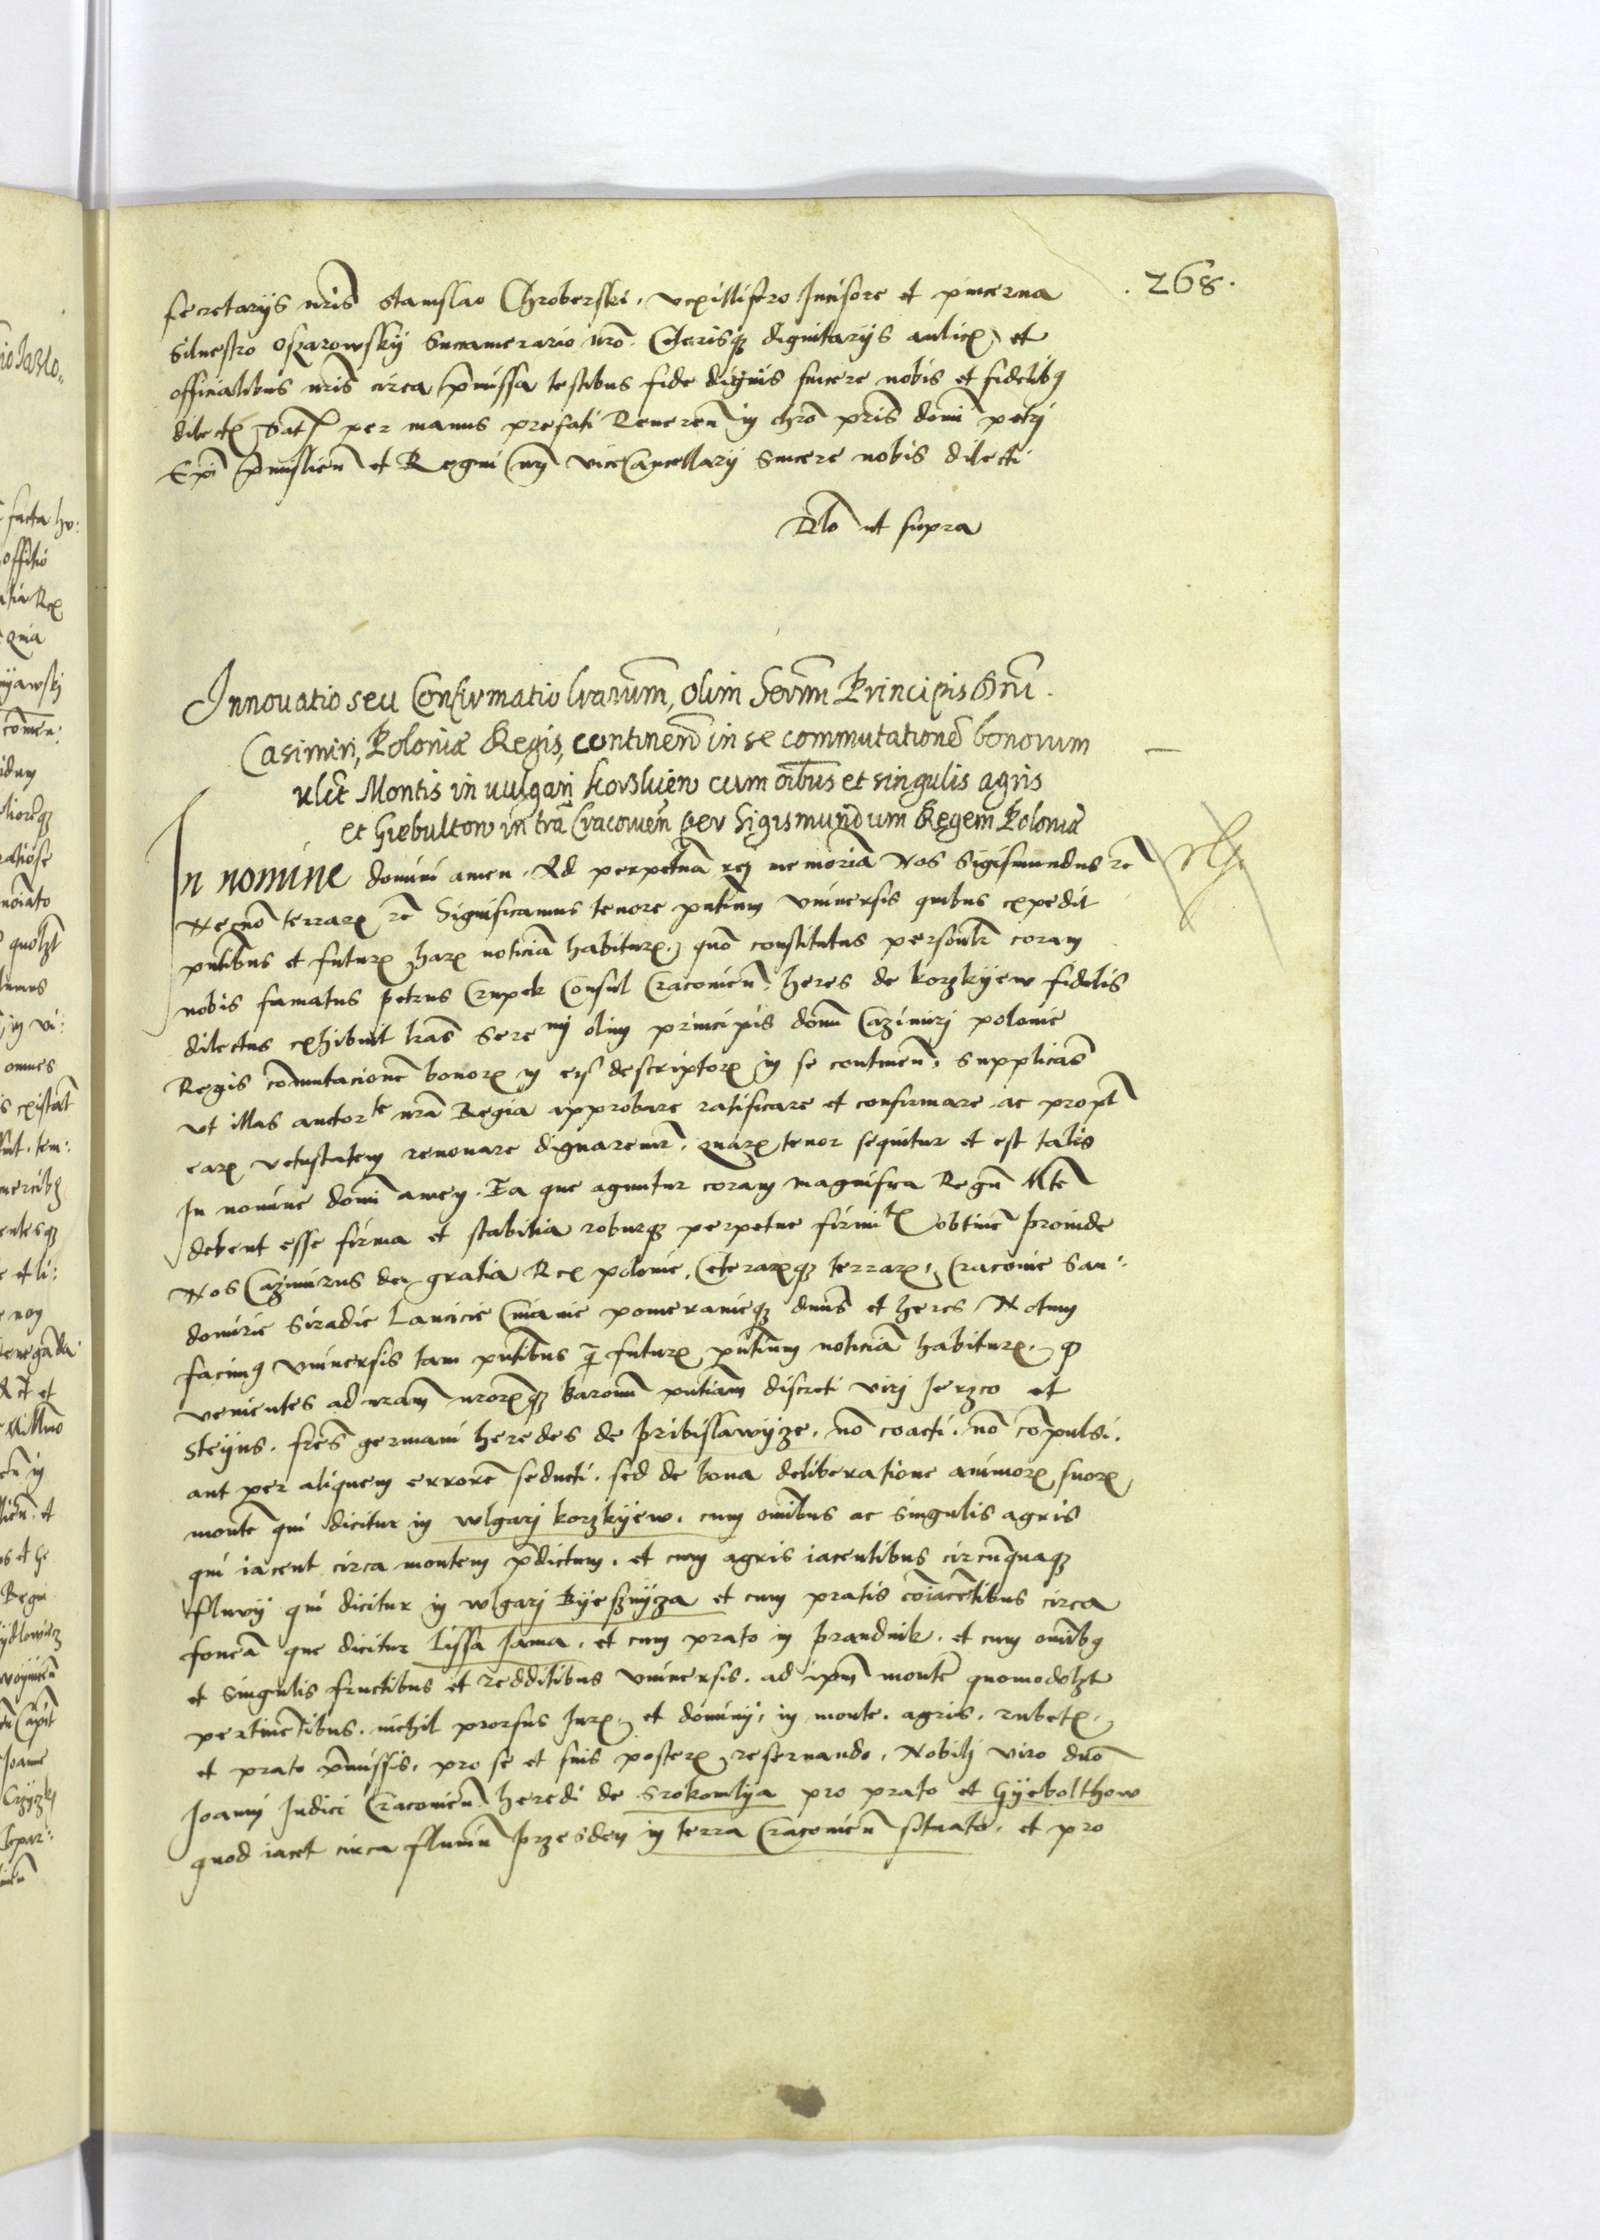 .268.
secretarijs nris Stanislao Chroberski, vexillifero Incisore et pincerna
Siluestro Oszarowskij Succamerario nro. Ceterisqz dignitarijs aulicz et
officialibus nris circa pmissa testibus fide dignis sincere nobis et fidelibq
dilectz Datz per manus prefati Reueren in chro pris domi petrj
Epi pmislien et Regni nrj viceCancellarij sincere nobis dilecti
Rlo ut supra
Innouatio seu Confirmatio lrarum, olim Sermi Principis Dni
Casimiri, Poloniæ Regis, continen in se commutatione bonorum
vlct Montis in uulgarj korzkiew cum oibus et singulis agris
et Giebultow in tra Cracouien per Sigismundum Regem Poloniæ
In nomine domini amen. Ad perpetua rej memoria Nos Sigismundus rc
Necno terrarz rc Significamus tenore pntium vniuersis quibus expedit
pntibus et futurz harz noticia habiturz, quo constitutus personlr coram
nobis famatus petrus Crupek Consul Cracouien, heres de korzkyew fidelis
dilectus exhibuit lras Serenmj olim principis domi Cazimirj polonie
Regis comutacione bonorz in eis descriptorz in se continen, supplicas
vt illas auctorte nra Regia approbare ratificare et confirmare ac propt
earz vetustatem renouare dignaremr, quarz tenor sequitur et est talis
In nomine domi amen. Ea que aguntur coram magnifica Regu Mte
debent esse firma et stabilia roburqz perpetue firmitz obtine proinde
Nos Cazimirus dei gratia Rex polonie, Ceterarzqz terrarz, Cracouie San:
domirie Siradie Lancicie Cuiauie pomeranieqz dnus et heres Notum
facimq vniuersis tam pntibus q futurz pntium noticia habiturz, q
venientes ad nram nrorzqz Baronu pntiam discreti virj Jerzco et
Steyns, fres germani heredes de pribislawijze, no coacti, no compulsi,
aut per aliquem errore seducti, sed de bona deliberatione animorz suorz
monte qui dicitur in wlgarj korzkijew, cum omibus ac singulis agris
qui iacent circa montem pdictum, et cum agris iacentibus circuquaqz
fluuij qui dicitur in wlgarj Byesznijza et cum pratis coiacetibus circa
fouea que dicitur Lissa Jama, et cum prato in prandnik, et cum omibq
et singulis fructibus et redditibus vniuersis, ad ipm monte quomodolzt
pertinetibus, nichil prorsus Jurz et dominij, in monte, agris, rubetz,
et prato pmissis, pro se et suis posterz reseruando, Nobili viro duo
Joannj Judici Cracouien heredi de Srokomlya pro prato et Gijebolthow
quod iacet circa fluuiu przesden in terra Cracouien situato, et pro